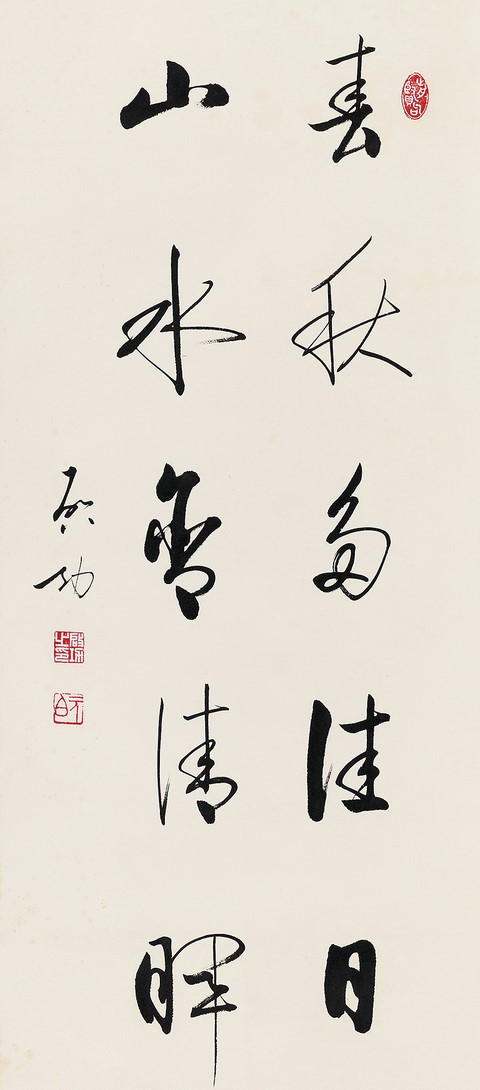 春秋多佳日
山水含清暉
启功
启功之印
元白